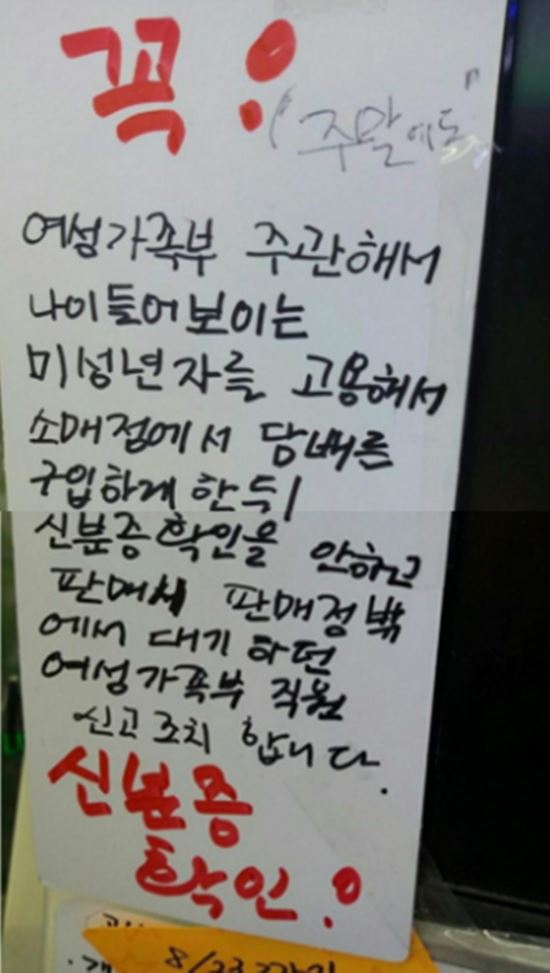 꼭!
"주말에도"
여성가족부 주관해서
나이들어보이는
미성년자를 고용해서
소매점에서 담배를
구입하게 한 뒤
신분증확인을 안하고
판매시 판매점밖
에서 대기하던
여성가족부 직원
신고조치 합니다.
신분증
확인!
8/23